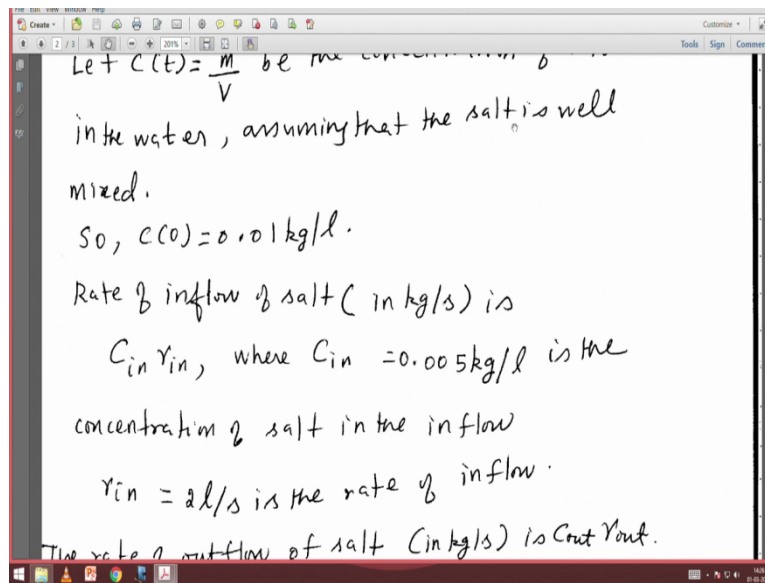 File Edit View Window Help
Create
Customize
2 / 3
201%
Tools Sign Commen
Let C(t) = m/V be the concentration of
in the water, assuming that the salt is well
mixed.
So, C(0) = 0.01 kg/l.
Rate of inflow of salt (in kg/s) is
Cin rin, where Cin = 0.005 kg/l is the
concentration of salt in the inflow
rin = 2l/s is the rate of inflow.
The rate of outflow of salt (in kg/s) is Cout rout.
14:26